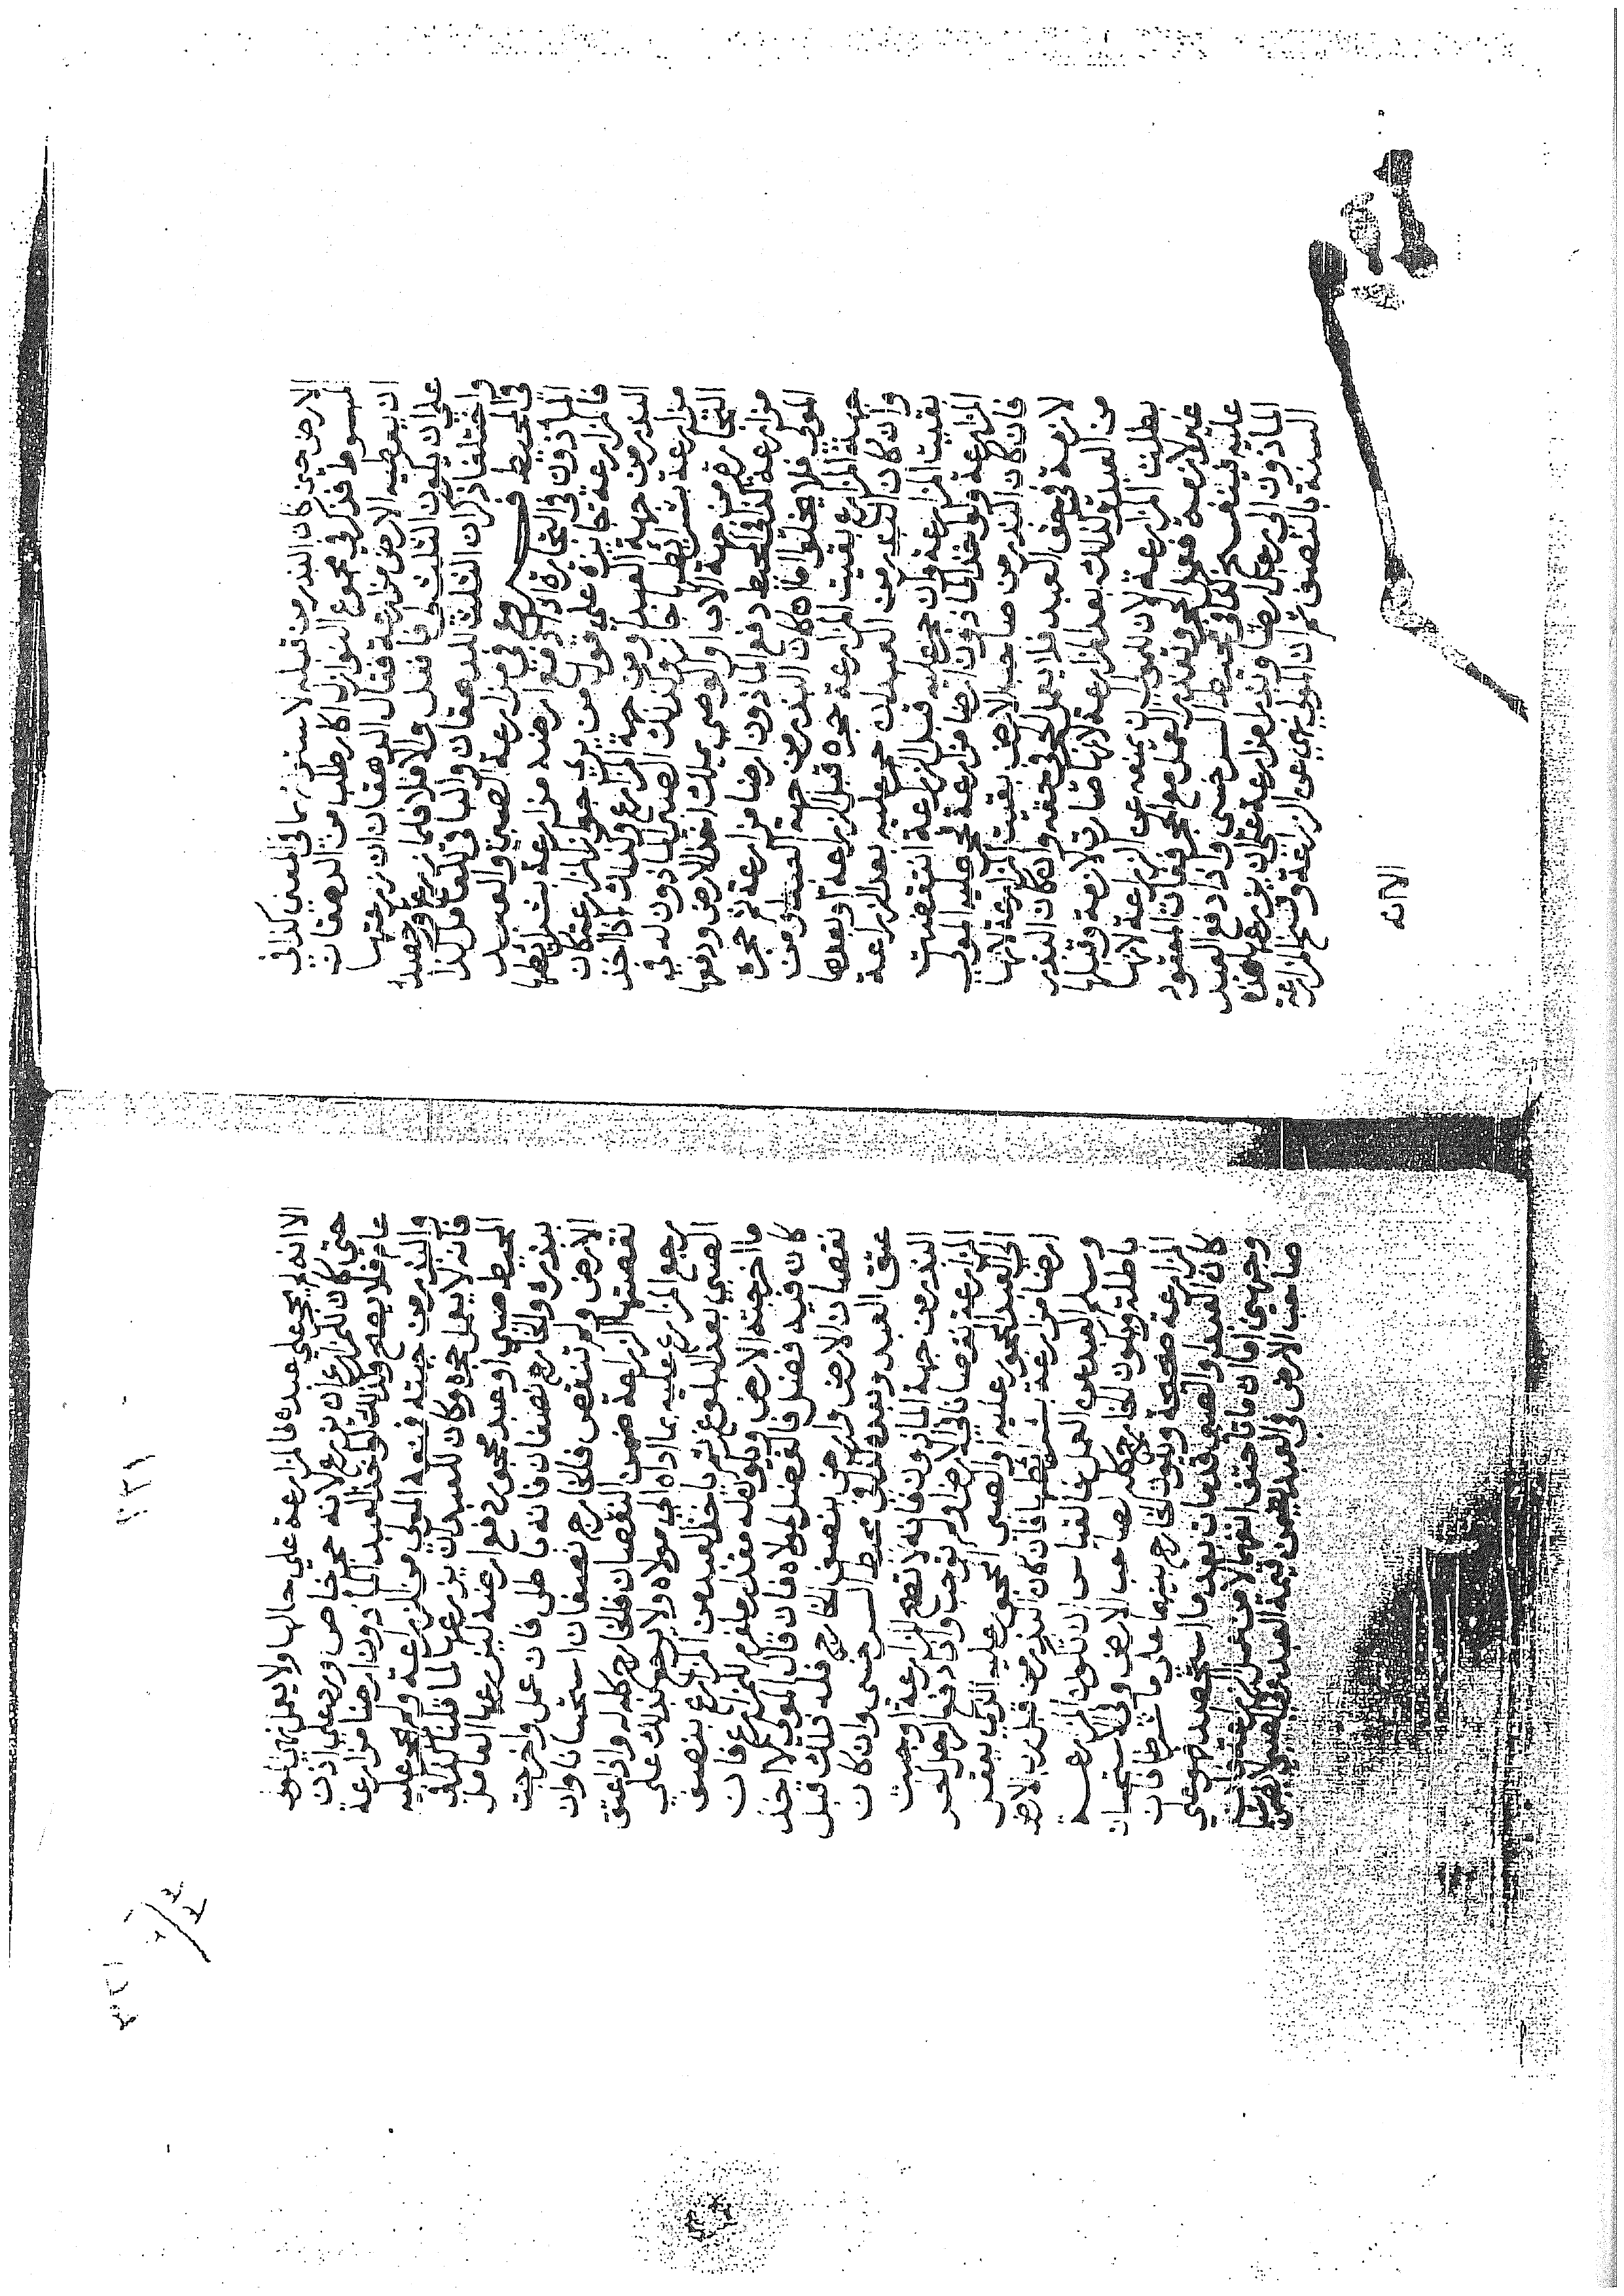 الارض حتي كان البذر من قبله لاستوائهما في المعني كذا في
المبسوط فذكر في مجموع النوازل اكار طلب من الدهقان
ان يعطيه الارض مزارعة فقال الدهقان ان زرعتها
علي ان يكون الثلث لي فافعل والا فلا فلما زرع وحصد
واختلفا ذكر ان الثلث للدهقان والباقي للعامل كذا
في المحيط فصل في مزارعة الصبي والعبد
المأذون في التجارة اذا دفع ارضه مزارعة بشرائطها
فالمزارعة جائزة علي قول من يري جواز المزارعة كان
البذر من جهة العبد او من جهة المزارع وكذلك اذا اخذ
مزارعة بشرائطها جاز وكذلك الصبي الماذون له في
التجارة من جهة الاب او الوصي يملك اخذ الارض ودفعها
مزارعة كذا في المحيط دفع الماذون ارضا مزارعة ثم حجره
المولي فلا يخلوا اما ان كان البذر من جهة العبد او من
جهة المزارع بقيت المزارعة حجره قبل الزراعة او بعدها
وان كان البذر من العبد ان حجر عليه بعد الزراعة
بقيت المزارعة وان حجر عليه قبل الزراعة انتقضت
المزارعة ولو اخذ الماذون ارضا مزارعة فحجر عليه المولي
فان كان البذر من صاحب الارض بقيت المزارعة لانها
لازمة في حق العبد فلا يعمل الحجر في حقه وان كان البذر
من العبد وكذلك بعد المزارعة لانها صارت لازمة وقبلها
بطلت المزارعة لان للمولي ان يمنعه عن الزراعة لانها
غير لازمة فعمل الحجر وتعذر العمل مع الحجر ففات المعقود
عليه فينفسخ كذا في محيط السرخسي واذا دفع العبد
الماذون الي رجل ارضا وبذرا مزارعة علي ان يزرعها هذه
السنة بالنصف ثم ان المولي نهي عن الزراعة وفسخ المزارعة
الا انه
٢٣١
الا انه لم يحجر علي عبده فالمزارعة علي حالها ولا يعمل نهيه
حتي كان للمزارع ان يزرع لانه حجر خاص ورد علي اذن
عام فلا يصح وكذلك لو اخذ العبد الماذون ارضا مزارعة
والبذر من جهته فمنعه المولي من الزراعة ولم يحجر عليه
فانه لا يعمل حجره وكان للعبد ان يزرعها لما قلنا كذا في
المحيط صبي او عبد محجور دفع ارضه ليزرعها العامل
ببذره والخارج نصفان فانه باطل فان عمل واخرجت
الارض ولم تنتقص فالخارج نصفان استحسانا وان
نقصتها الزراعة ضمن النقصان فالخارج كله له واذ عتق
رجع المزارع عليه بما اداه الي مولاه ولا يرجع بذلك علي
الصبي بعد البلوغ ثم ياخذ العبد من المزارع بنصف
ما اخرجته الارض ويكون له مقدار ما غرم للمزارع فان
كان فيه فضل فالفضل لمولاه فان قال المولي لا اخذ
نقصان الارض وارضي بنصف الخارج فله ذلك قبل
عتق العبد وبعده كذا في محيط السرخسي وان كان
البذر من جهة الماذون فانه لا تصح المزارعة اوجبت
المزارعة نقصانا في الارض او لم توجب واذا دفع الرجل الحر
الي العبد المحجور عليه او الصبي المحجور عليه الذي يعقل
ارضا مزارعة بشرائطها فان كان البذر من قبل رب الارض
وسلم العبد عن العمل فالقياس ان تكون المزارعة
باطلة ويكون الخارج كله لصاحب الارض وفي الاستحسان
المزارعة صحيحة ويكون الخارج بينهما علي ما شرطا فان
كان العبد او الصبي قد مات بعد ما استحصد فهو علي
وجهين اما ان ماتا حتف انفهما او من عمل الزراعة
صاحب الارض في العبد يضمن قيمة العبد وفي الصبي لا يضمن
٣٣١